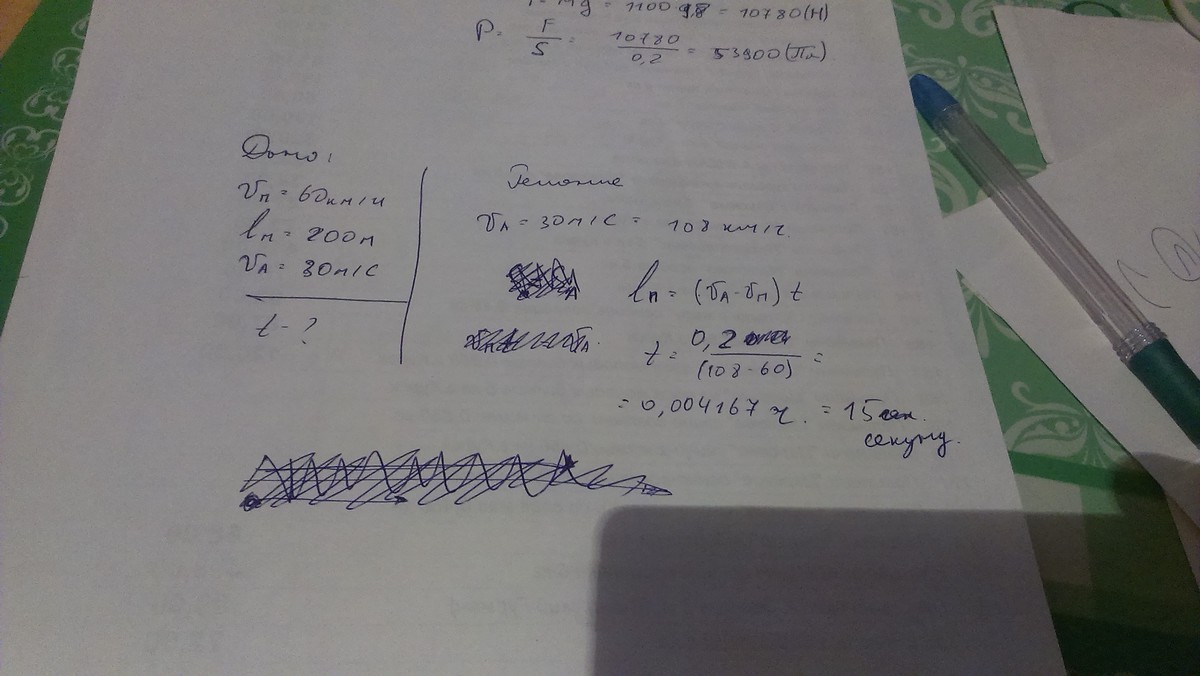 F = Mg = 1100 9,8 = 10780 (Н)
P = F/S = 10780/0,2 = 53900 (Па)
Дано:
Vп = 60км/ч
lп = 200м
Vл = 30м/с
t - ?
Решение
Vл = 30м/с = 108 км/ч.
lп = (Vл - Vп) t
t = 0,2/(108-60) =
= 0,004167 ч. = 15 сек.
секунд.